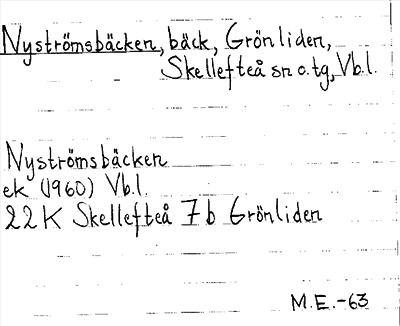 Nyströmsbäcken, bäck, Grönliden,
Skellefteå sn o. tg, Vb.l.
Nyströmsbäcken
ek (1960) Vb.l.
22K Skellefteå 7b Grönliden
M.E.-63